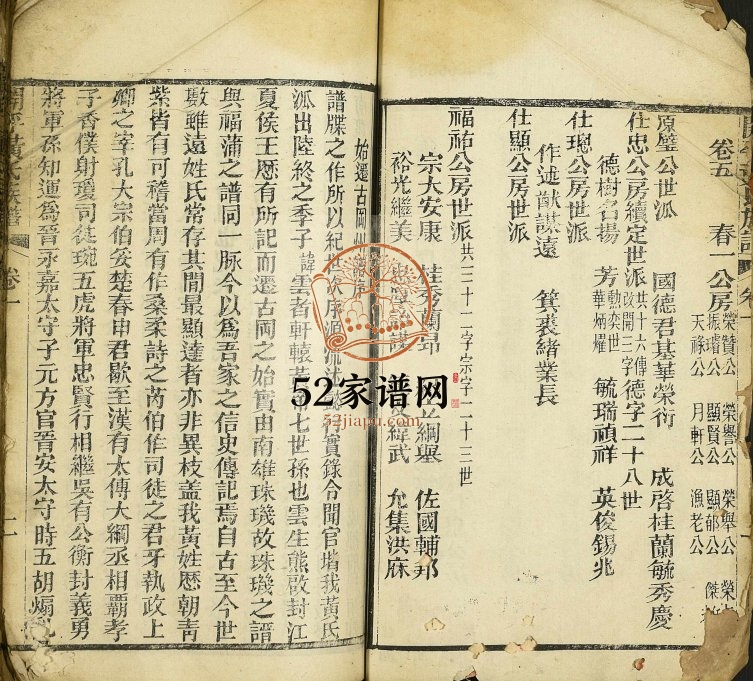 卷五 春一公房 榮贊公 榮譽公 榮舉公
振璿公 顯賢公 顯郁公
天祿公 月軒公 漁老公
源璧公世派 國德君基華榮衍 成啓桂蘭毓秀慶
仕忠公房續定世派 共十六傳德字二十八世 改開三字
德樹名揚 芳勳奕世 華炳燿 毓瑞禎祥 英俊錫兆
仕璁公房世派
作述猷謀遠 箕裘緒業長
仕顯公房世派
福祐公房世派 共三十二字宗字二十三世
宗大安康 桂秀蘭昂 長綱舉 佐國輔邦
裕光繼美 緯武 允集洪庥
始遷古岡州
譜牒之作所以紀世次序源流述 行實錄令聞官堦我黃氏
派出陸終之季子諱雲者軒轅黃帝七世孫也雲生熊啟封江
夏侯王歷有所記而遷古岡之始實由南雄珠璣故珠璣之譜
與福浦之譜同一脉今以爲吾家之信史傳記焉自古至今世
數雖遠姓氏常存其閒最顯達者亦非異枝蓋我黃姓歷朝青
紫皆有可稽當周有作桑柔詩之芮伯作司徒之君牙執政上
卿之宰孔大宗伯安楚春申君歇至漢有太傅大綱丞相霸孝
子香僕射瓊司徒琬五虎將軍忠賢行相繼吳有公衡封義勇
將軍孫知運爲晉永嘉太守子元方官晉安太守時五胡煽
開平黃氏族譜 卷一
52家谱网
52jiapu.com